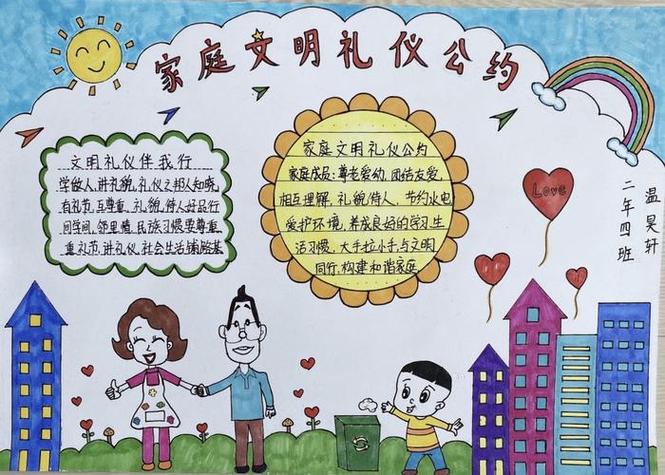 家庭文明礼仪公约
文明礼仪伴我行
学做人,讲礼貌,礼仪之相人知晓,
有礼节,互尊重,礼貌待人好品行
同学间,邻里情,民族习惯要尊重
重礼节,讲礼仪,社会生活铺路基
家庭文明礼仪公约
家庭成员:尊老爱幼,团结友爱,
相互理解,礼貌待人,节约水电,
爱护环境,养成良好的学习生
活习惯,大手拉小手与文明
同行,构建和谐家庭
Love
二年四班
温昊轩